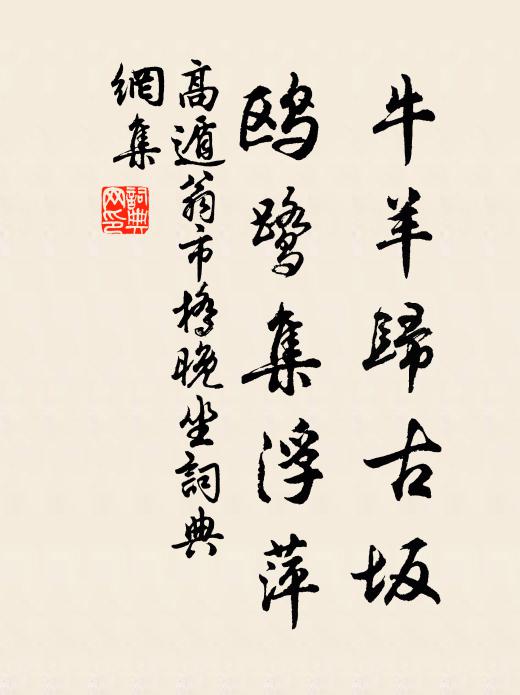 牛羊歸古坂
鸥鷺集浮萍
高遁翁市橋晚坐詞典
網集
詞典網印